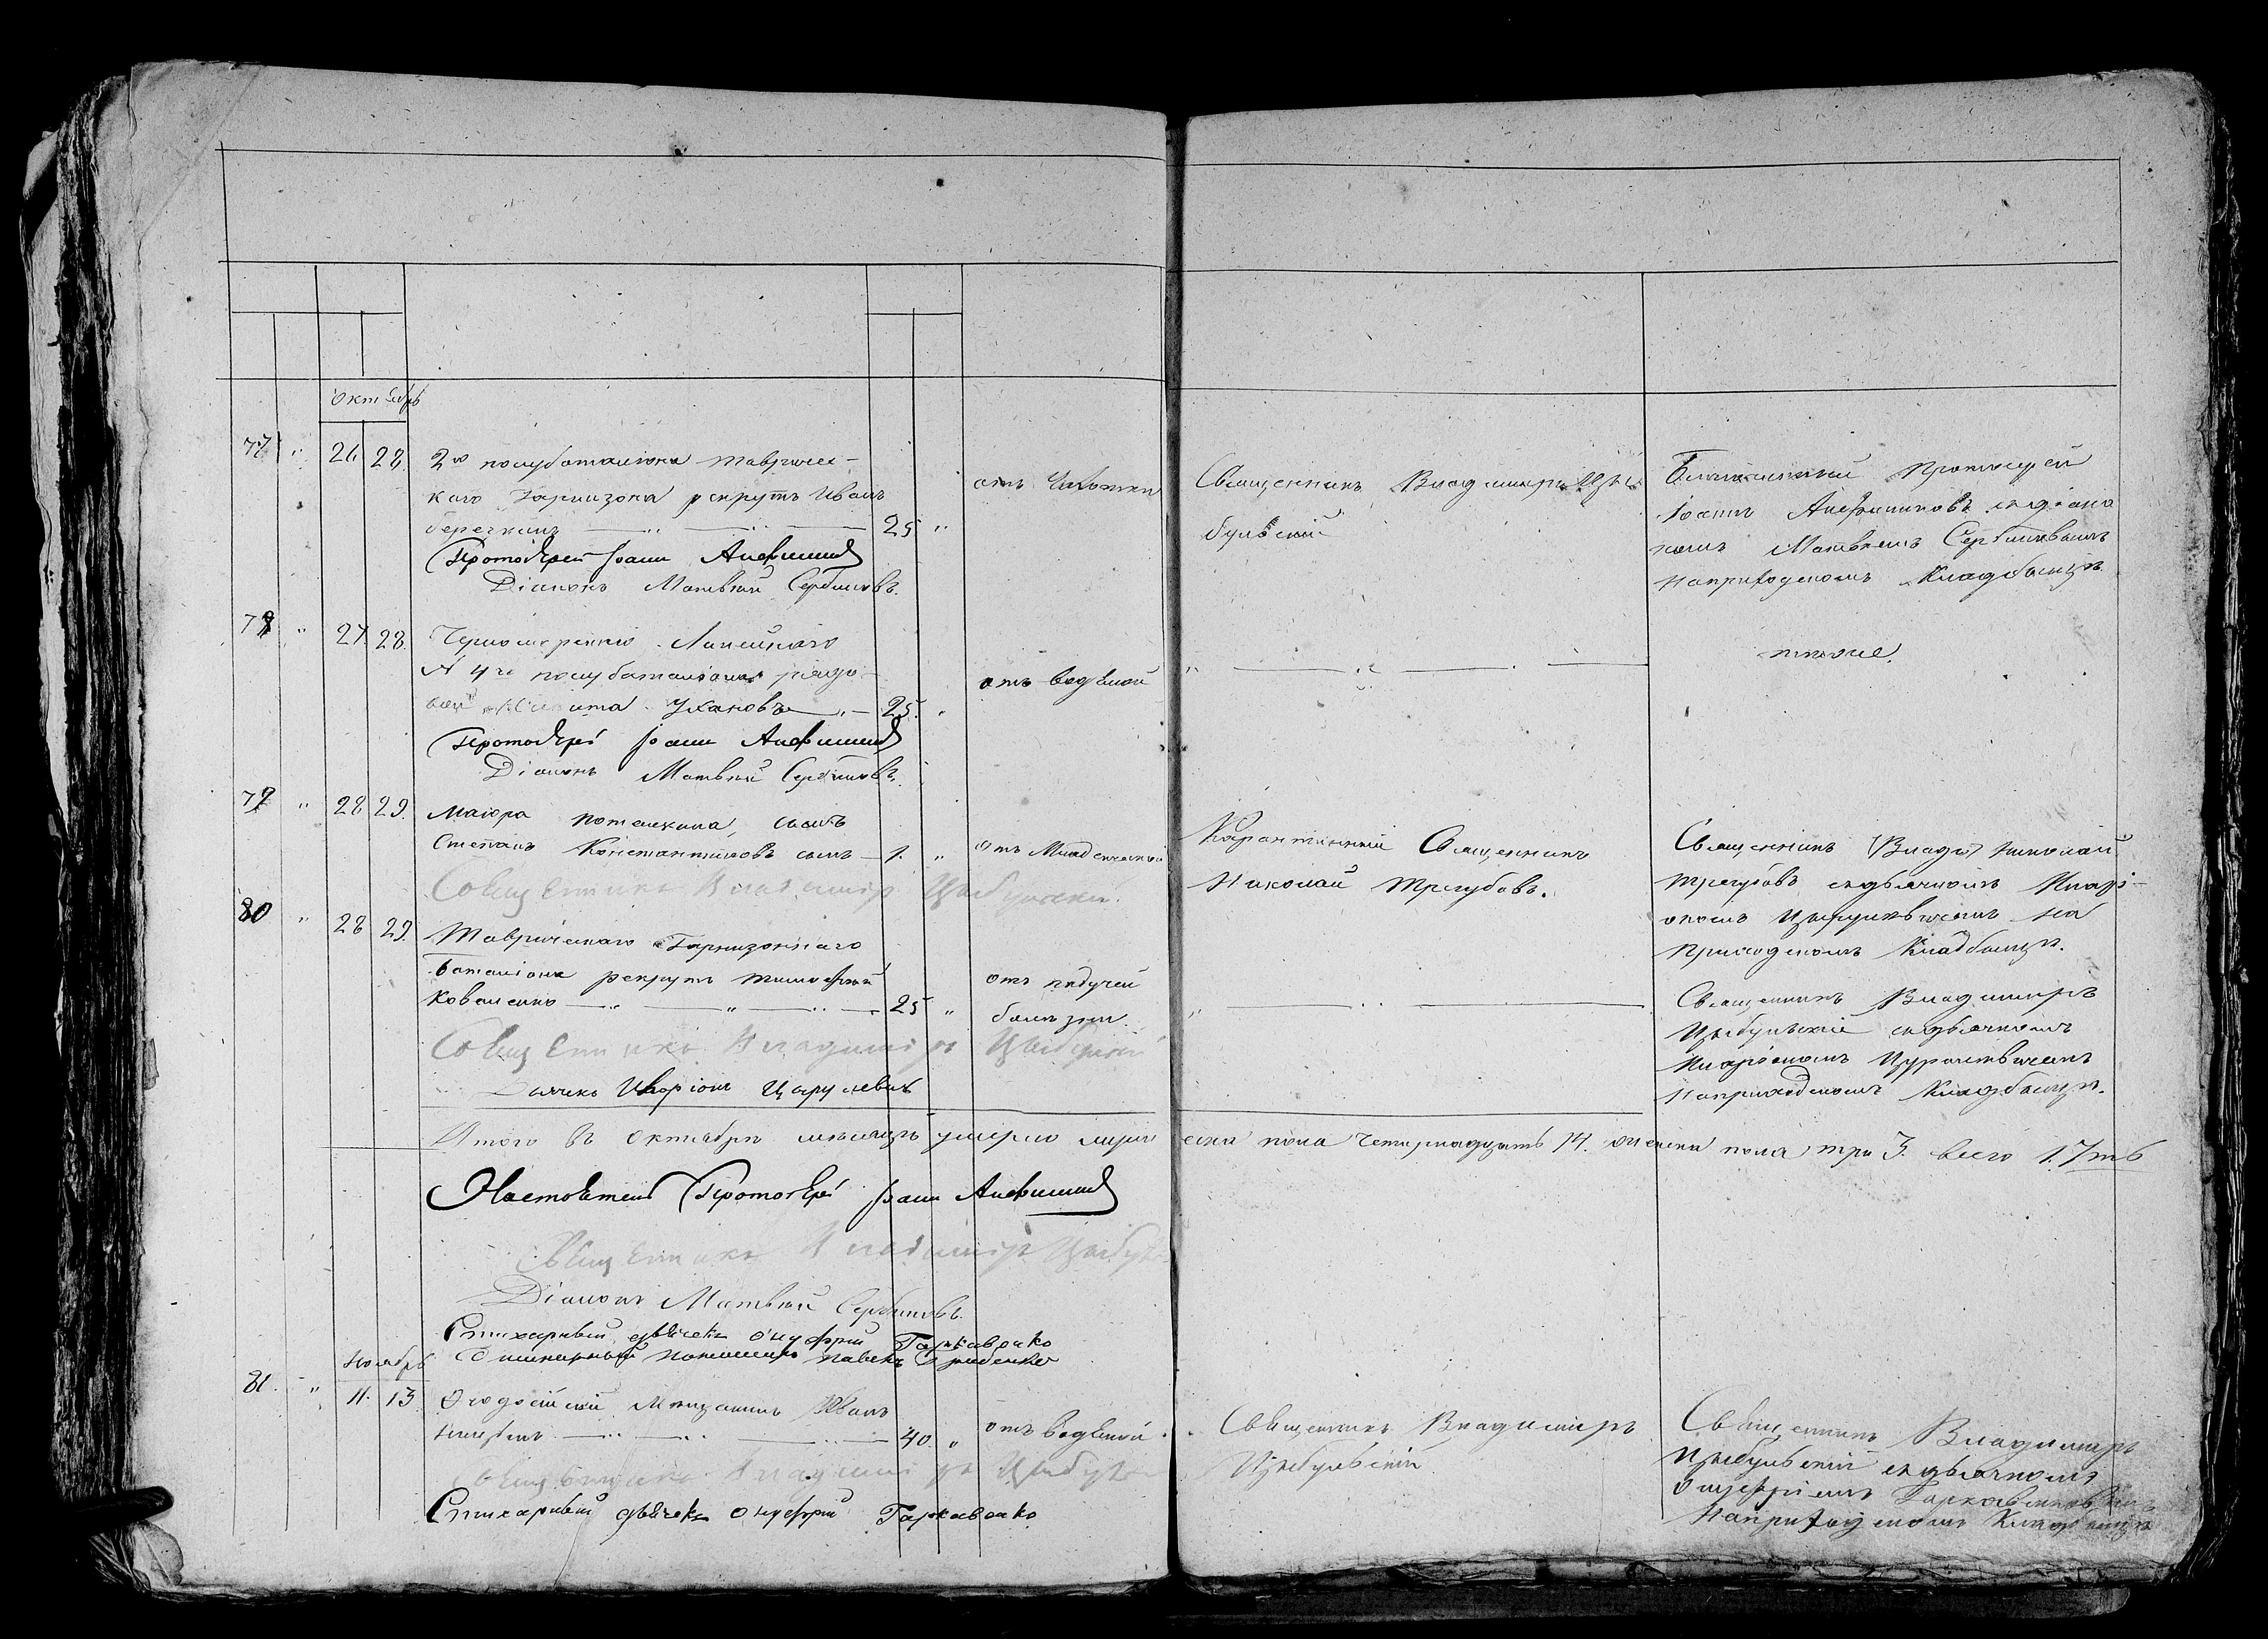 Октябрь
77 " 26 28. 2го полубаталіона Тавричес-
каго Гарнизона рекрутъ Иванъ
25 "
отъ Чахотки
Священникъ Владимиръ Цы
бульскій
Благочинный Протоіерей
Іоаннъ Анфимовъ съ діако
номъ Матвѣемъ Сербиновымъ
на приходскомъ Кладбищѣ.
Протоіерей Іоаннъ
Діаконъ Матвѣй Сербиновъ.
78 " 27. 28. Черноморскаго Линейнаго
№ 4го полубаталіона рядо-
вой Никита Ухановъ " 25. "
отъ водяной
" " "
тоже.
Протоіерей Іоаннъ
Діаконъ Матвѣй Сербиновъ.
79 " 28 29. Маіора Потемкина, сынъ
Стефанъ Константиновъ сынъ 1. "
отъ Младенческой
Карантинный Священникъ
Николай Трегубовъ.
Священникъ Николай
Трегубовъ съ дьячкомъ Илларі-
ономъ на
приходскомъ Кладбищѣ.
Священникъ Владимиръ Цыбульскій
80 " 28 29. Таврическаго Гарнизоннаго
Баталіона рекрутъ Тимофей
Коваленко " " " 25 "
отъ падучей
болезни.
" "
Священникъ Владимиръ
Цыбульскій съ дьячкомъ
Илларіономъ
на приходскомъ Кладбищѣ.
Священникъ Владимиръ Цыбульскій
Дьячекъ Иларіонъ Царулевичъ
Итого въ Октябрѣ мѣсяцѣ умерло мужеска пола четырнадцать 14. женска пола три 3. всего 17ть
Настоятель Протоіерей Іоаннъ
Священникъ Владимиръ Цыбуль
Діаконъ Матвѣй Сербиновъ.
Стихарный дьячекъ Онуфрій Гаркавенко
Стихарный пономарь Павелъ
Ноябрь
81. " 11. 13 Ѳеодосійскій Мѣщанинъ Иванъ
40. "
отъ водяной.
Священникъ Владимиръ
Цыбульскій
Священникъ Владимиръ
Цыбульскій съ дьячкомъ
Онуфріемъ Гаркавенковымъ
на приходскомъ Кладбищѣ
Священникъ Владимиръ Цыбуль
Стихарный дьячекъ Онуфрій Гаркавенко